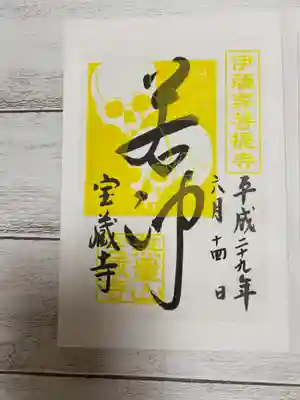 伊藤家菩提寺
平成二十九年
六月十四日
若冲
宝蔵寺